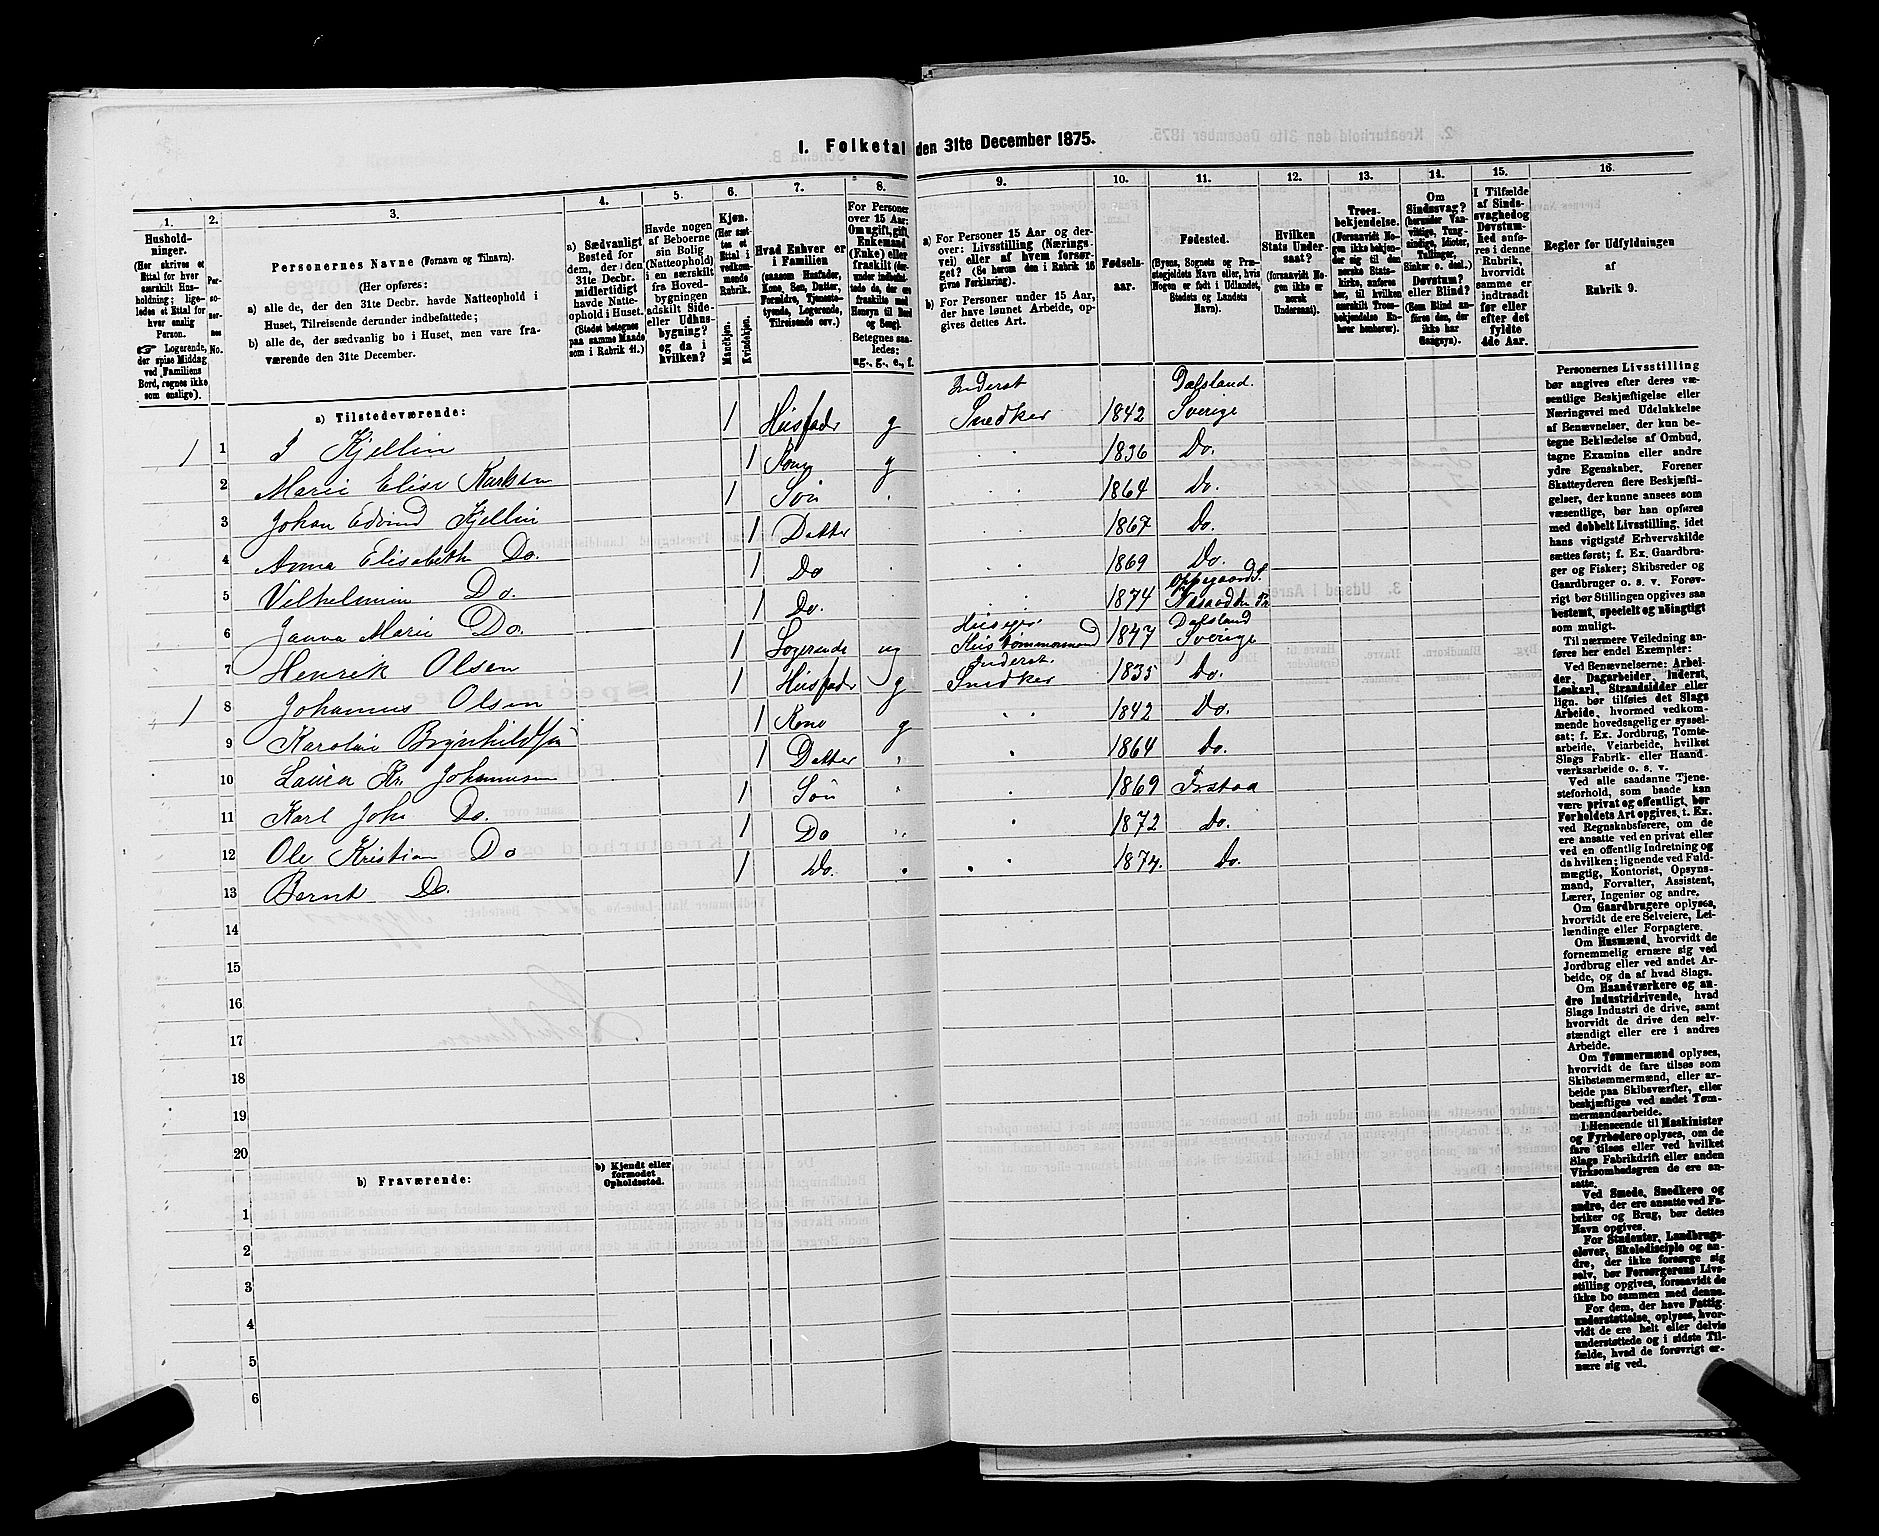 I. Folketal den 31te December 1875.
1. 2. 3. 4. 5. 6. 7. 8. 9. 10. 11. 12. 13. 14. 15. 16.
Hushold-
ninger.
(Her skrives et
Ettal for hver
særskilt Hus-
holdning; lige-
ledes et Ettal for
hver enslig
Person.
☞ Logerende,
der spise Middag
ved Familiens
Bord, regnes ikke
som enslige).
Per-
so-
ner-
nes
No.
Personernes Navne (Fornavn og Tilnavn).
(Her opføres:
a) alle de, der den 31te Decbr. havde Natteophold i
Huset, Tilreisende derunder indbefattede;
b) alle de, der sædvanlig bo i Huset, men vare fra-
værende den 31te December.
a) Sædvanligt
Bosted for
dem, der i den
31te Decbr.
midlertidigt
havde Natte-
ophold i Huset.
(Stedet betegnes
paa samme Maade
som i Rubrik 11.)
Havde nogen
af Beboerne
sin Bolig
(Natteophold)
i en særskilt
fra Hoved-
bygningen
adskilt Side-
eller Udhus-
bygning?
og da i
hvilken?
Kjøn.
(Her sæt-
tes et
Ettal i
vedkom-
mende
Rubrik.
Mandkjøn.
Kvindekjøn.
Hvad Enhver er
i Familien
(saasom Husfader,
Kone, Søn, Datter,
Forældre, Tjeneste-
tyende, Logerende,
Tilreisende osv.)
For Personer
over 15 Aar:
Om ugift, gift,
Enkemand
(Enke) eller
fraskilt
Betegnes saa-
ledes:
ug., g., e., f.
a) For Personer 15 Aar og der-
over: Livsstilling (Nærings-
vei) eller af hvem forsør-
get? (Se herom den i Rubrik 16
givne Forklaring).
b) For Personer under 15 Aar,
der have lønnet Arbeide, op-
gives dettes Art.
Fødsels-
aar.
Fødested.
(Byens, Sognets og Præ-
stegjeldets Navn eller, hvis
Nogen er født i Udlandet,
Stedets og Landets
Navn).
Hvilken
Stats Under-
saat?
(forsaavidt No-
gen ikke er
norsk
Undersaat).
Troes-
bekjendelse.
(Forsaavidt No-
gen ikke bekjen-
der sig til den
norske Stats-
kirke, anføres
her, til hvilken
særskilt Troes-
bekjendelse En-
hver henhører).
Om
Sindssvag?
(herunder Van-
vittige, Tung-
sindige, Idioter,
Tullinger,
Sinker o. desl.)
Døvstum?
eller Blind?
(Som Blind an-
føres den, der
ikke har
Gangsyn).
I Tilfælde
af Sinds-
svaghed og
Døvstum-
hed anfø-
res i denne
Rubrik,
hvorvidt
samme er
indtraadt
før eller
efter det
fyldte
4de Aar.
Regler før Udfyldningen
af
Rubrik 9.
a) Tilstedeværende:
1 1 J Kjellin 1 Husfader g Inderst Snedker 1842 Dalsland. Sverige
2 Marie Elise Karlsen 1 Kone g 1836 Do.
3 Johan Edvind Kjellin 1 Søn 1864 Do.
4 Anna Elisabeth Do. 1 Datter 1867 Do.
5 Vilhelmin Do. 1 Do 1869 Do.
6 Janna Marie Do. 1 Do. 1874 Oppegaard S. Næsodden Pr
7 Henrik Olsen 1 Logerende ug Huseier Hus Tømmermand 1847 Dalsland Sverige
1 8 Johannus Olsen 1 Husfader g Inderst. Snedker 1835 Do.
9 Karoline Brynhildsen 1 Kone g 1842 Do.
10 Laura Kr. Johannesen 1 Datter 1864 Do.
11 Karl Joh. Do. 1 Søn 1869
12 Ole Kristian Do 1 Do 1872 Do.
13 Bernt Do. 1 Do. 1874. Do.
14
15
16
17
18
19
20
b) Fraværende:
b) Kjendt eller
formodet
Opholdssted.
1
2
3
4
5
6
Personernes Livsstilling
bør angives efter deres væ-
sentlige Beskjæftigelse eller
Næringsvei med Udelukkelse
af Benævnelser, der kun be-
tegne Beklædelse af Ombud,
tagne Examina eller andre
ydre Egenskaber. Forener
Skatteyderen flere Beskjæfti-
gelser, der kunne ansees som
væsentlige, bør han opføres
med dobbelt Livsstilling, idet
hans vigtigste Erhvervskilde
sættes først; f. Ex. Gaardbru-
ger og Fisker; Skibsreder og
Gaardbruger o. s. v. Forøv-
rigt bør Stillingen opgives saa
bestemt, specielt og nöiagtigt
som muligt.
Til nærmere Veiledning an-
føres her endel Exempler:
Ved Benævnelserne: Arbei-
der, Dagarbeider, Inderst,
Løskarl, Strandsidder eller
lign. bør tilføies det Slags
Arbeide, hvormed vedkom-
mende hovedsagelig er syssel-
sat; f. Ex. Jordbrug, Tomte-
arbeide, Veiarbeide, hvilket
Slags Fabrik- eller Haand-
værksarbeide o. s. v.
Ved alle saadanne Tjene-
steforhold, som baade kan
være privat og offentligt, bør
Forholdets Art opgives, t. Ex.
ved Regnskabsførere, om de
ere ansatte ved en privat eller
ved en offentlig Indretning og
da hvilken; lignende ved Fuld-
mægtig, Kontorist, Opsyns-
mand, Forvalter, Assistent,
Lærer, Ingeniør og andre.
Om Gaardbrugere oplyses,
hvorvidt de ere Selveiere, Lei-
lændinge eller Forpagtere.
Om Husmænd, hvorvidt de
fornemmelig ernære sig ved
Jordbrug eller ved andet Ar-
beide, og da af hvad Slags.
Om Haandværkere og an-
dre Industridrivende, hvad
Slags Industri de drive, samt
hvorvidt de drive den selv-
stændigt eller ere i andres
Arbeide.
Om Tømmermænd oplyses,
hvorvidt de fare tilsøs som
Skibstømmermænd, eller ar-
beide paa Skibsværfter, eller
beskjæftiges ved andet Tøm-
mermandsarbeide.
I Henseende til Maskinister
og Fyrbødere oplyses, om de
fare tilsøs eller ved hvilket
Slags Fabrikdrift eller anden
Virksomhedsgren de ere an-
satte.
Ved Smede, Snedkere og
andre, der ere ansatte ved Fa-
briker og Brug, bør dettes
Navn opgives.
For Studenter, Landbrugs-
elever, Skoledisciple og an-
dre, der ikke forsørge sig
selv, bør Forsørgerens Livs-
stilling opgives, forsaavidt de
ikke bo sammen med denne.
For dem, der have Fattig-
understøttelse, oplyses, hvor-
vidt de ere helt eller delvis
understøttede og i sidste Til-
fælde, hvad de forøvrigt er-
nære sig ved.